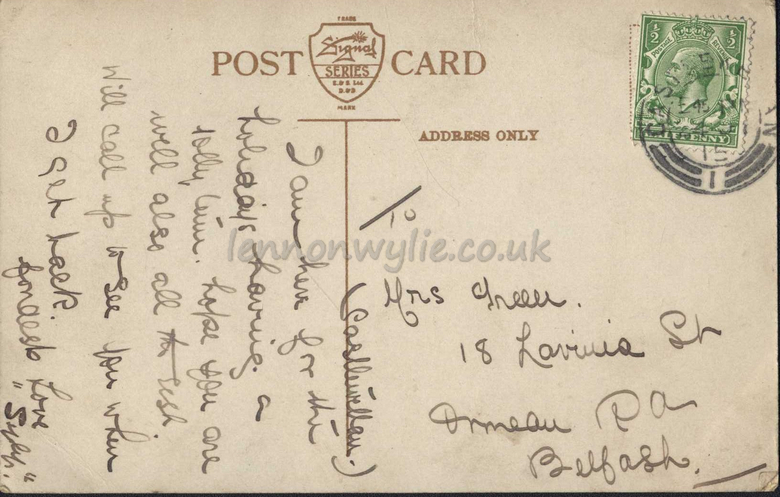 TRADE
Signal
SERIES
E. & S. Ltd
D & B
MARK
POST CARD
ADDRESS ONLY
½ ½
POSTAGE REVENUE
HALFPENNY
1
To
Mrs Green.
18 Lavinia St
Ormeau Rd
Belfast.
(Castlewellan.)
I am here for the
holidays having a
jolly time. hope you are
well also all the rest
will call up to see you when
I get back.
fondest love
lennonwylie.co.uk